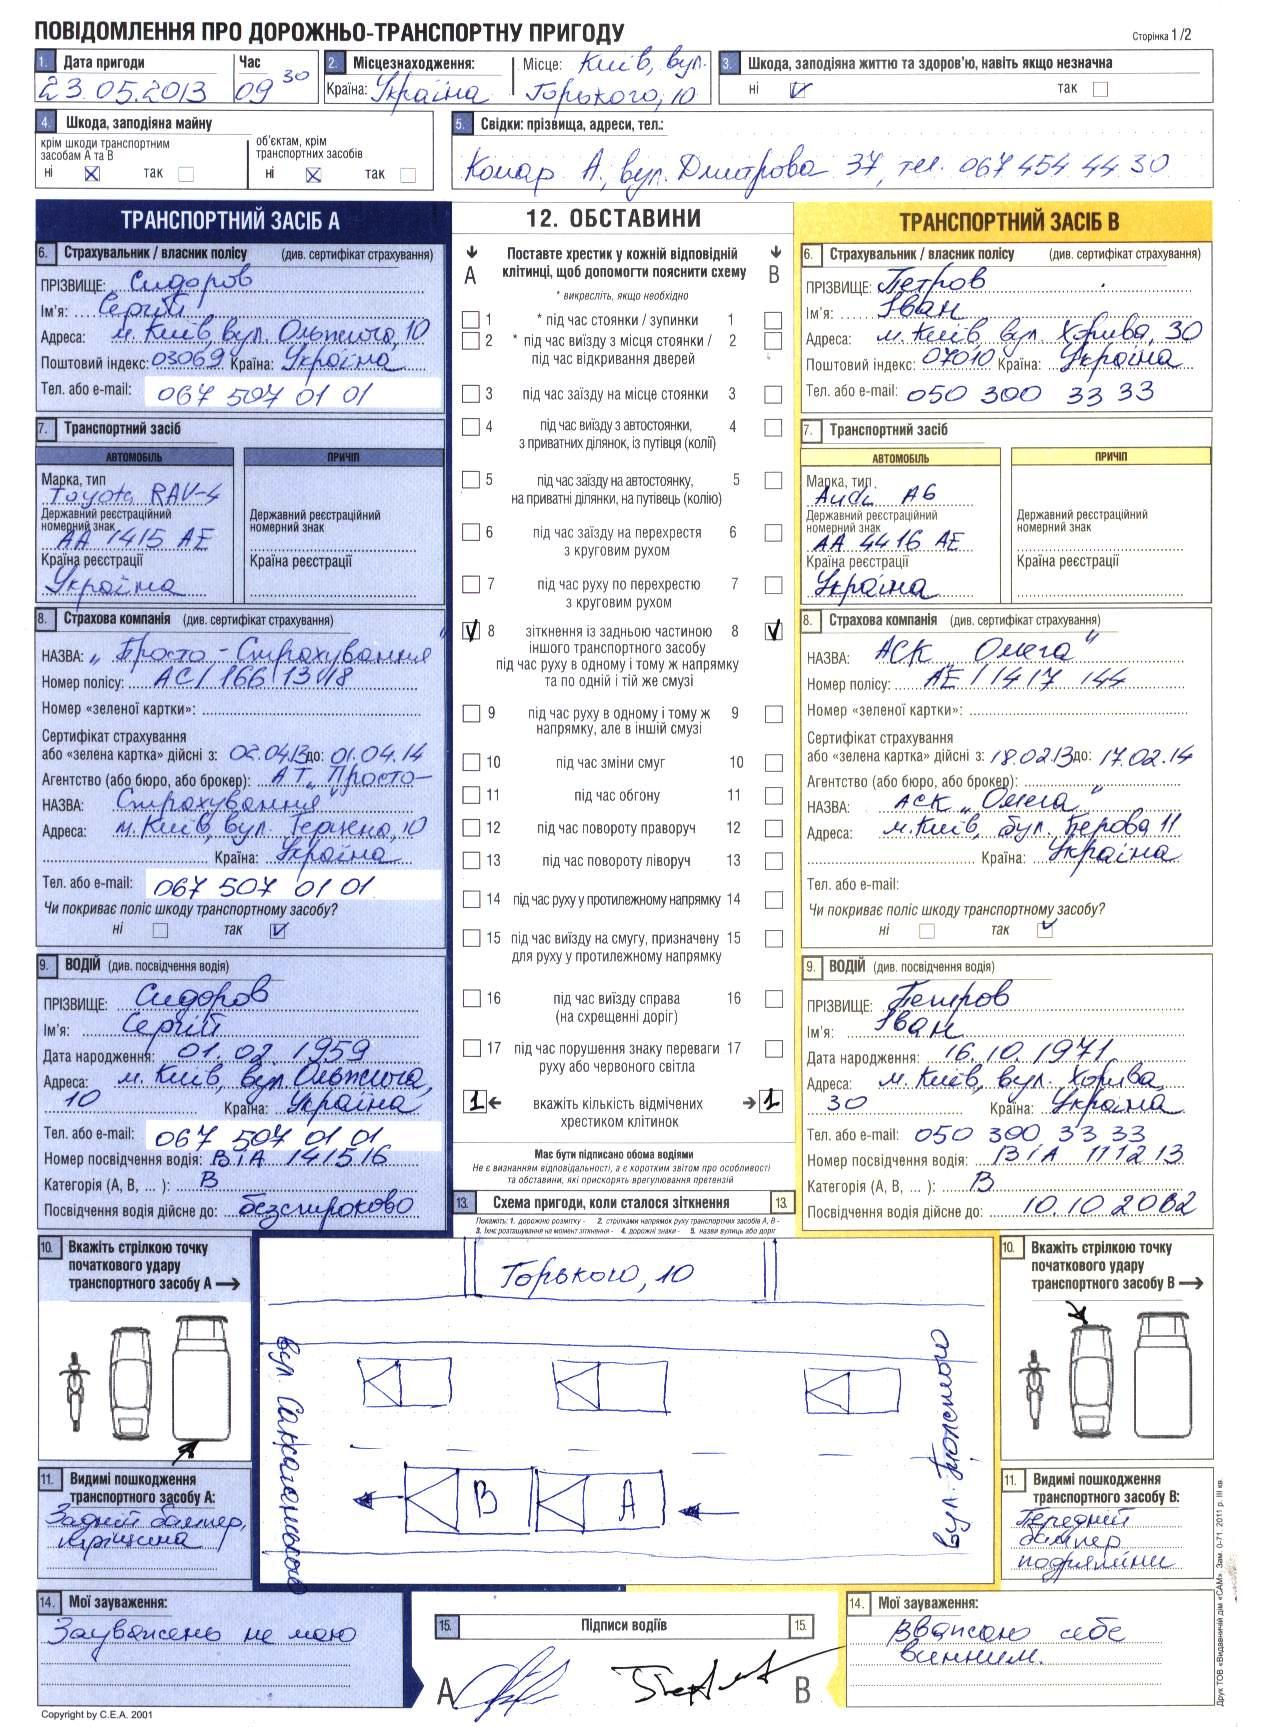 ПОВІДОМЛЕННЯ ПРО ДОРОЖНЬО-ТРАНСПОРТНУ ПРИГОДУ
Сторінка 1/2
1. Дата пригоди Час
23.05.2013 09 30
2. Місцезнаходження: Місце: Київ, вул.
Країна: Україна Горького, 10
3. Шкода, заподіяна життю та здоров'ю, навіть якщо незначна
ні так
4. Шкода, заподіяна майну
крім шкоди транспортним засобам А та В
ні так
об'єктам, крім транспортних засобів
ні так
5. Свідки: прізвища, адреси, тел.:
Комар А, вул. Дмитрова 37, тел. 067 454 44 30
ТРАНСПОРТНИЙ ЗАСІБ А
6. Страхувальник / власник полісу (див. сертифікат страхування)
ПРІЗВИЩЕ: Сидоров
Ім'я: Сергій
Адреса: м. Київ вул. Ольжича, 10
Поштовий індекс: 03069 Країна: Україна
Тел. або e-mail: 067 507 01 01
7. Транспортний засіб
АВТОМОБІЛЬ ПРИЧІП
Марка, тип
Toyota RAV-4
Державний реєстраційний номерний знак
АА 1415 АЕ
Країна реєстрації
Україна
Державний реєстраційний номерний знак
Країна реєстрації
8. Страхова компанія (див. сертифікат страхування)
НАЗВА: „Просто-Страхування"
Номер полісу: АС/ 166 13418
Номер «зеленої картки»:
Сертифікат страхування
або «зелена картка» дійсні з: 02.04.13 до: 01.04.14
Агентство (або бюро, або брокер): АТ „Просто-
НАЗВА: Страхування"
Адреса: м. Київ, вул. Герцена, 10
Країна: Україна
Тел. або e-mail: 067 507 01 01
Чи покриває поліс шкоду транспортному засобу?
ні так
9. ВОДІЙ (див. посвідчення водія)
ПРІЗВИЩЕ: Сидоров
Ім'я: Сергій
Дата народження: 01. 02. 1959
Адреса: м. Київ, вул. Ольжича,
10 Країна: Україна
Тел. або e-mail: 067 507 01 01
Номер посвідчення водія: ВІА 141516
Категорія (А, В, ... ): В
Посвідчення водія дійсне до: безстроково
10. Вкажіть стрілкою точку
початкового удару
транспортного засобу А
11. Видимі пошкодження
транспортного засобу А:
Задній бампер,
тріщина
14. Мої зауваження:
Зауважень не маю
12. ОБСТАВИНИ
А В
Поставте хрестик у кожній відповідній
клітинці, щоб допомогти пояснити схему
* викресліть, якщо необхідно
1 * під час стоянки / зупинки 1
2 * під час виїзду з місця стоянки / 2
під час відкривання дверей
3 під час заїзду на місце стоянки 3
4 під час виїзду з автостоянки, 4
з приватних ділянок, із путівця (колії)
5 під час заїзду на автостоянку, 5
на приватні ділянки, на путівець (колію)
6 під час заїзду на перехрестя 6
з круговим рухом
7 під час руху по перехрестю 7
з круговим рухом
8 зіткнення із задньою частиною 8
іншого транспортного засобу
під час руху в одному і тому ж напрямку
та по одній і тій же смузі
9 під час руху в одному і тому ж 9
напрямку, але в іншій смузі
10 під час зміни смуг 10
11 під час обгону 11
12 під час повороту праворуч 12
13 під час повороту ліворуч 13
14 під час руху у протилежному напрямку 14
15 під час виїзду на смугу, призначену 15
для руху у протилежному напрямку
16 під час виїзду справа 16
(на схрещенні доріг)
17 під час порушення знаку переваги 17
руху або червоного світла
1 вкажіть кількість відмічених 1
хрестиком клітинок
Має бути підписано обома водіями
Не є визнанням відповідальності, а є коротким звітом про особливості
та обставини, які прискорять врегулювання претензій
13. Схема пригоди, коли сталося зіткнення 13.
Покажіть: 1. дорожню розмітку - 2. стрілками напрямок руху транспортних засобів А, В -
3. їхнє розташування на момент зіткнення - 4. дорожні знаки - 5. назви вулиць або доріг
Горького, 10
вул. Саксаганського
вул. Толстого
В А
15. Підписи водіїв 15.
А В
ТРАНСПОРТНИЙ ЗАСІБ В
6. Страхувальник / власник полісу (див. сертифікат страхування)
ПРІЗВИЩЕ: Петров
Ім'я: Іван
Адреса: м. Київ вул. Хорива, 30
Поштовий індекс: 07010 Країна: Україна
Тел. або e-mail: 050 300 33 33
7. Транспортний засіб
АВТОМОБІЛЬ ПРИЧІП
Марка, тип
Audi A6
Державний реєстраційний номерний знак
АА 4416 АЕ
Країна реєстрації
Україна
Державний реєстраційний номерний знак
Країна реєстрації
8. Страхова компанія (див. сертифікат страхування)
НАЗВА: АСК „Омега"
Номер полісу: АЕ/ 1417 144
Номер «зеленої картки»:
Сертифікат страхування
або «зелена картка» дійсні з: 18.02.13 до: 17.02.14
Агентство (або бюро, або брокер):
НАЗВА: АСК „Омега"
Адреса: м. Київ, бул. Перова 11
Країна: Україна
Тел. або e-mail:
Чи покриває поліс шкоду транспортному засобу?
ні так
9. ВОДІЙ (див. посвідчення водія)
ПРІЗВИЩЕ: Петров
Ім'я: Іван
Дата народження: 16. 10. 1971
Адреса: м. Київ, вул. Хорива,
30 Країна: Україна
Тел. або e-mail: 050 300 33 33
Номер посвідчення водія: ВІА 111213
Категорія (А, В, ... ): В
Посвідчення водія дійсне до: 10.10.2062
10. Вкажіть стрілкою точку
початкового удару
транспортного засобу В
11. Видимі пошкодження
транспортного засобу В:
Передній
бампер
подряпини
14. Мої зауваження:
Вважаю себе
винним.
Copyright by C.E.A. 2001
Друк ТОВ «Видавничій дім «САМ». Зам. 0-71. 2011 р. III кв.